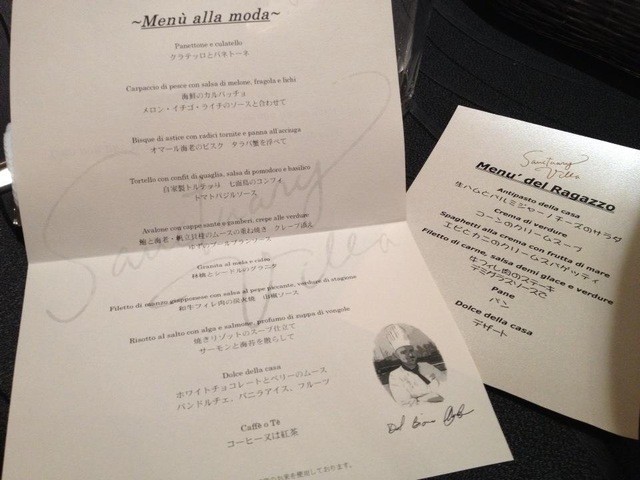 ~Menù alla moda~
Panettone e culatello
クラテッロとパネトーネ
Carpaccio di pesce con salsa di melone, fragola e lichi
海鮮のカルパッチョ
メロン・イチゴ・ライチのソースと合わせて
Bisque di astice con radici tornite e panna
オマール海老のビスク タラバ蟹を浮べて
Tortello con confit di quaglia, salsa di pomodoro e basilico
自家製トルテッロ 七面鳥のコンフィ
トマトバジルソース
Avalone con cappe sante e gamberi, crepe alle verdure
鮑と海老・帆立貝柱のムースの重ね焼き クレープ添え
Granita al mela e calva
林檎とシードルのグラニタ
Filetto di manzo giapponese con salsa al pepe piccante, verdure di stagione
和牛フィレ肉の炭火焼 山椒ソース
Risotto al salto con alga e salmone, profumo di zuppa di vongole
焼きリゾットのスープ仕立て
サーモンと海苔を散らして
Dolce della casa
ホワイトチョコレートとベリーのムース
パンドルチェ、バニラアイス、フルーツ
Caffè o Tè
コーヒー又は紅茶
のお米を使用しております。
Sanctuary
Villa
Menu' del Ragazzo
Antipasto della casa
生ハムとパルミジャーノチーズのサラダ
Creme di verdure
コーンのクリームスープ
Spaghetti alla crema con frutta di mare
エビとカニのクリームスパゲッティ
Filetto di carne, salsa demi glace e verdure
牛フィレ肉のステーキ
デミグラスソースで
Pane
パン
Dolce della casa
デザート